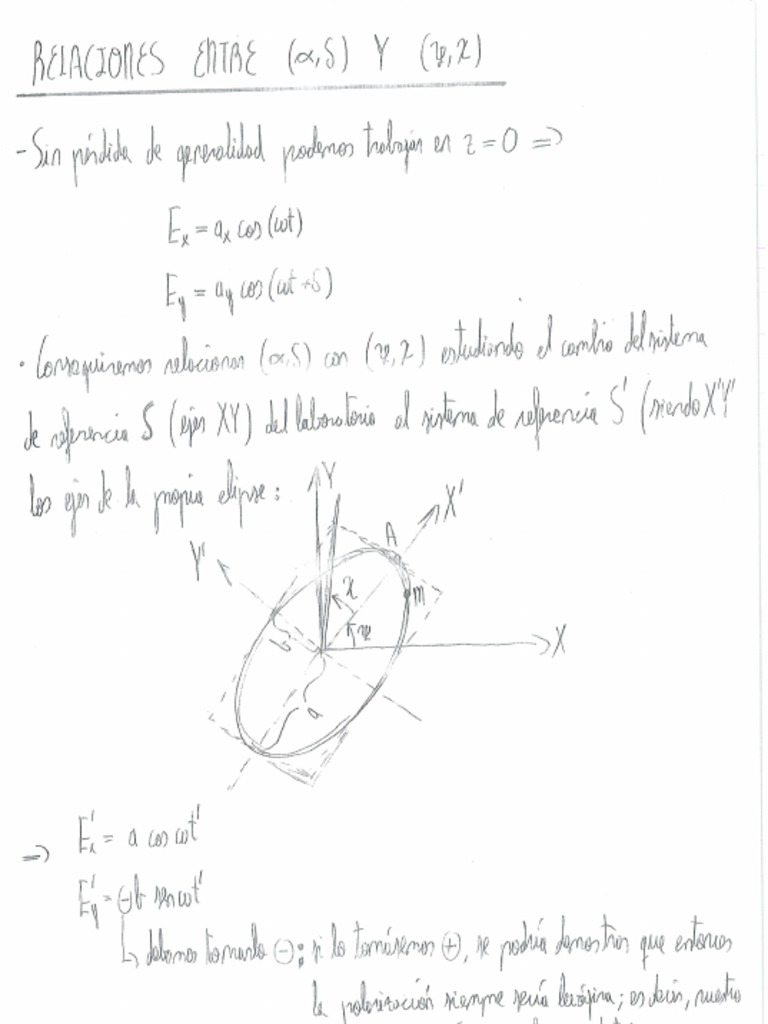 RELACIONES ENTRE (α,δ) Y (ψ,χ)
- Sin pérdida de generalidad podemos trabajar en z = 0 ⇒
Ex = ax cos(ωt)
Ey = ay cos(ωt + δ)
· Conseguiremos relacionar (α,δ) con (ψ,χ) estudiando el cambio del sistema
de referencia S (ejes XY) del laboratorio al sistema de referencia S' (siendo X'Y'
los ejes de la propia elipse:
Y
X'
A
Y'
χ
m
ψ
X
b
a
⇒ E'x = a cos ωt'
E'y = ⊖b sen ωt'
↳ debemos tomarlo ⊖; si lo tomásemos ⊕, se podría demostrar que entonces
la polarización siempre sería levógira; es decir, nuestro